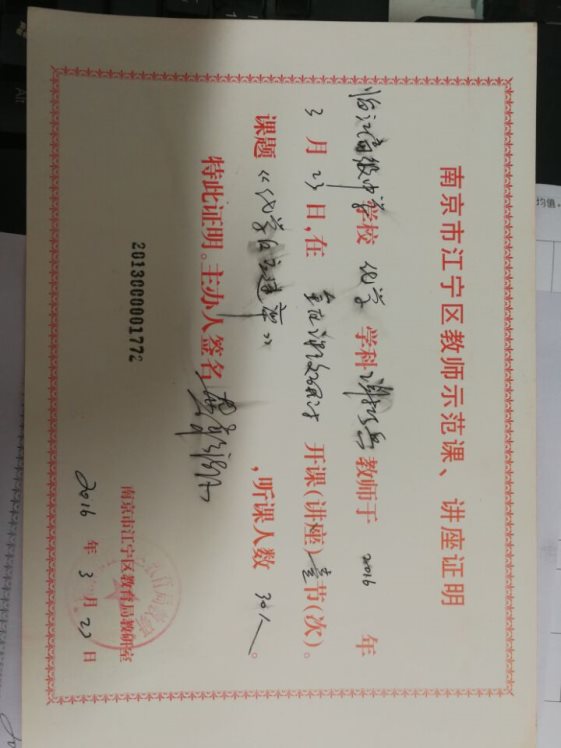 南京市江宁区教师示范课、讲座证明
临江高级中学学校 化学 学科 教师于 2016 年
3 月 23 日,在 开课(讲座)壹节(次)。
课题《化学 》 ,听课人数 30人。
特此证明。主办人签名
2013000001772
南京市江宁区教育局教研室
2016 年 3 月 23 日